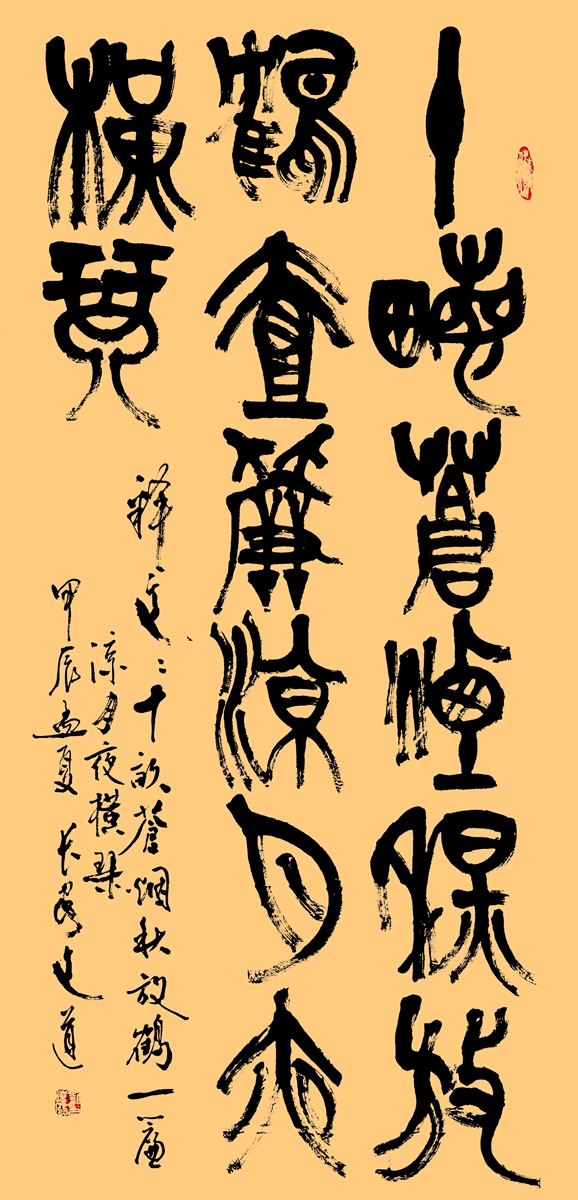 十畝蒼煙秋放
鶴壹簾涼月夜
橫琴
釋文:十畝蒼烟秋放鶴一簾
涼月夜橫琴
甲辰孟夏 文道